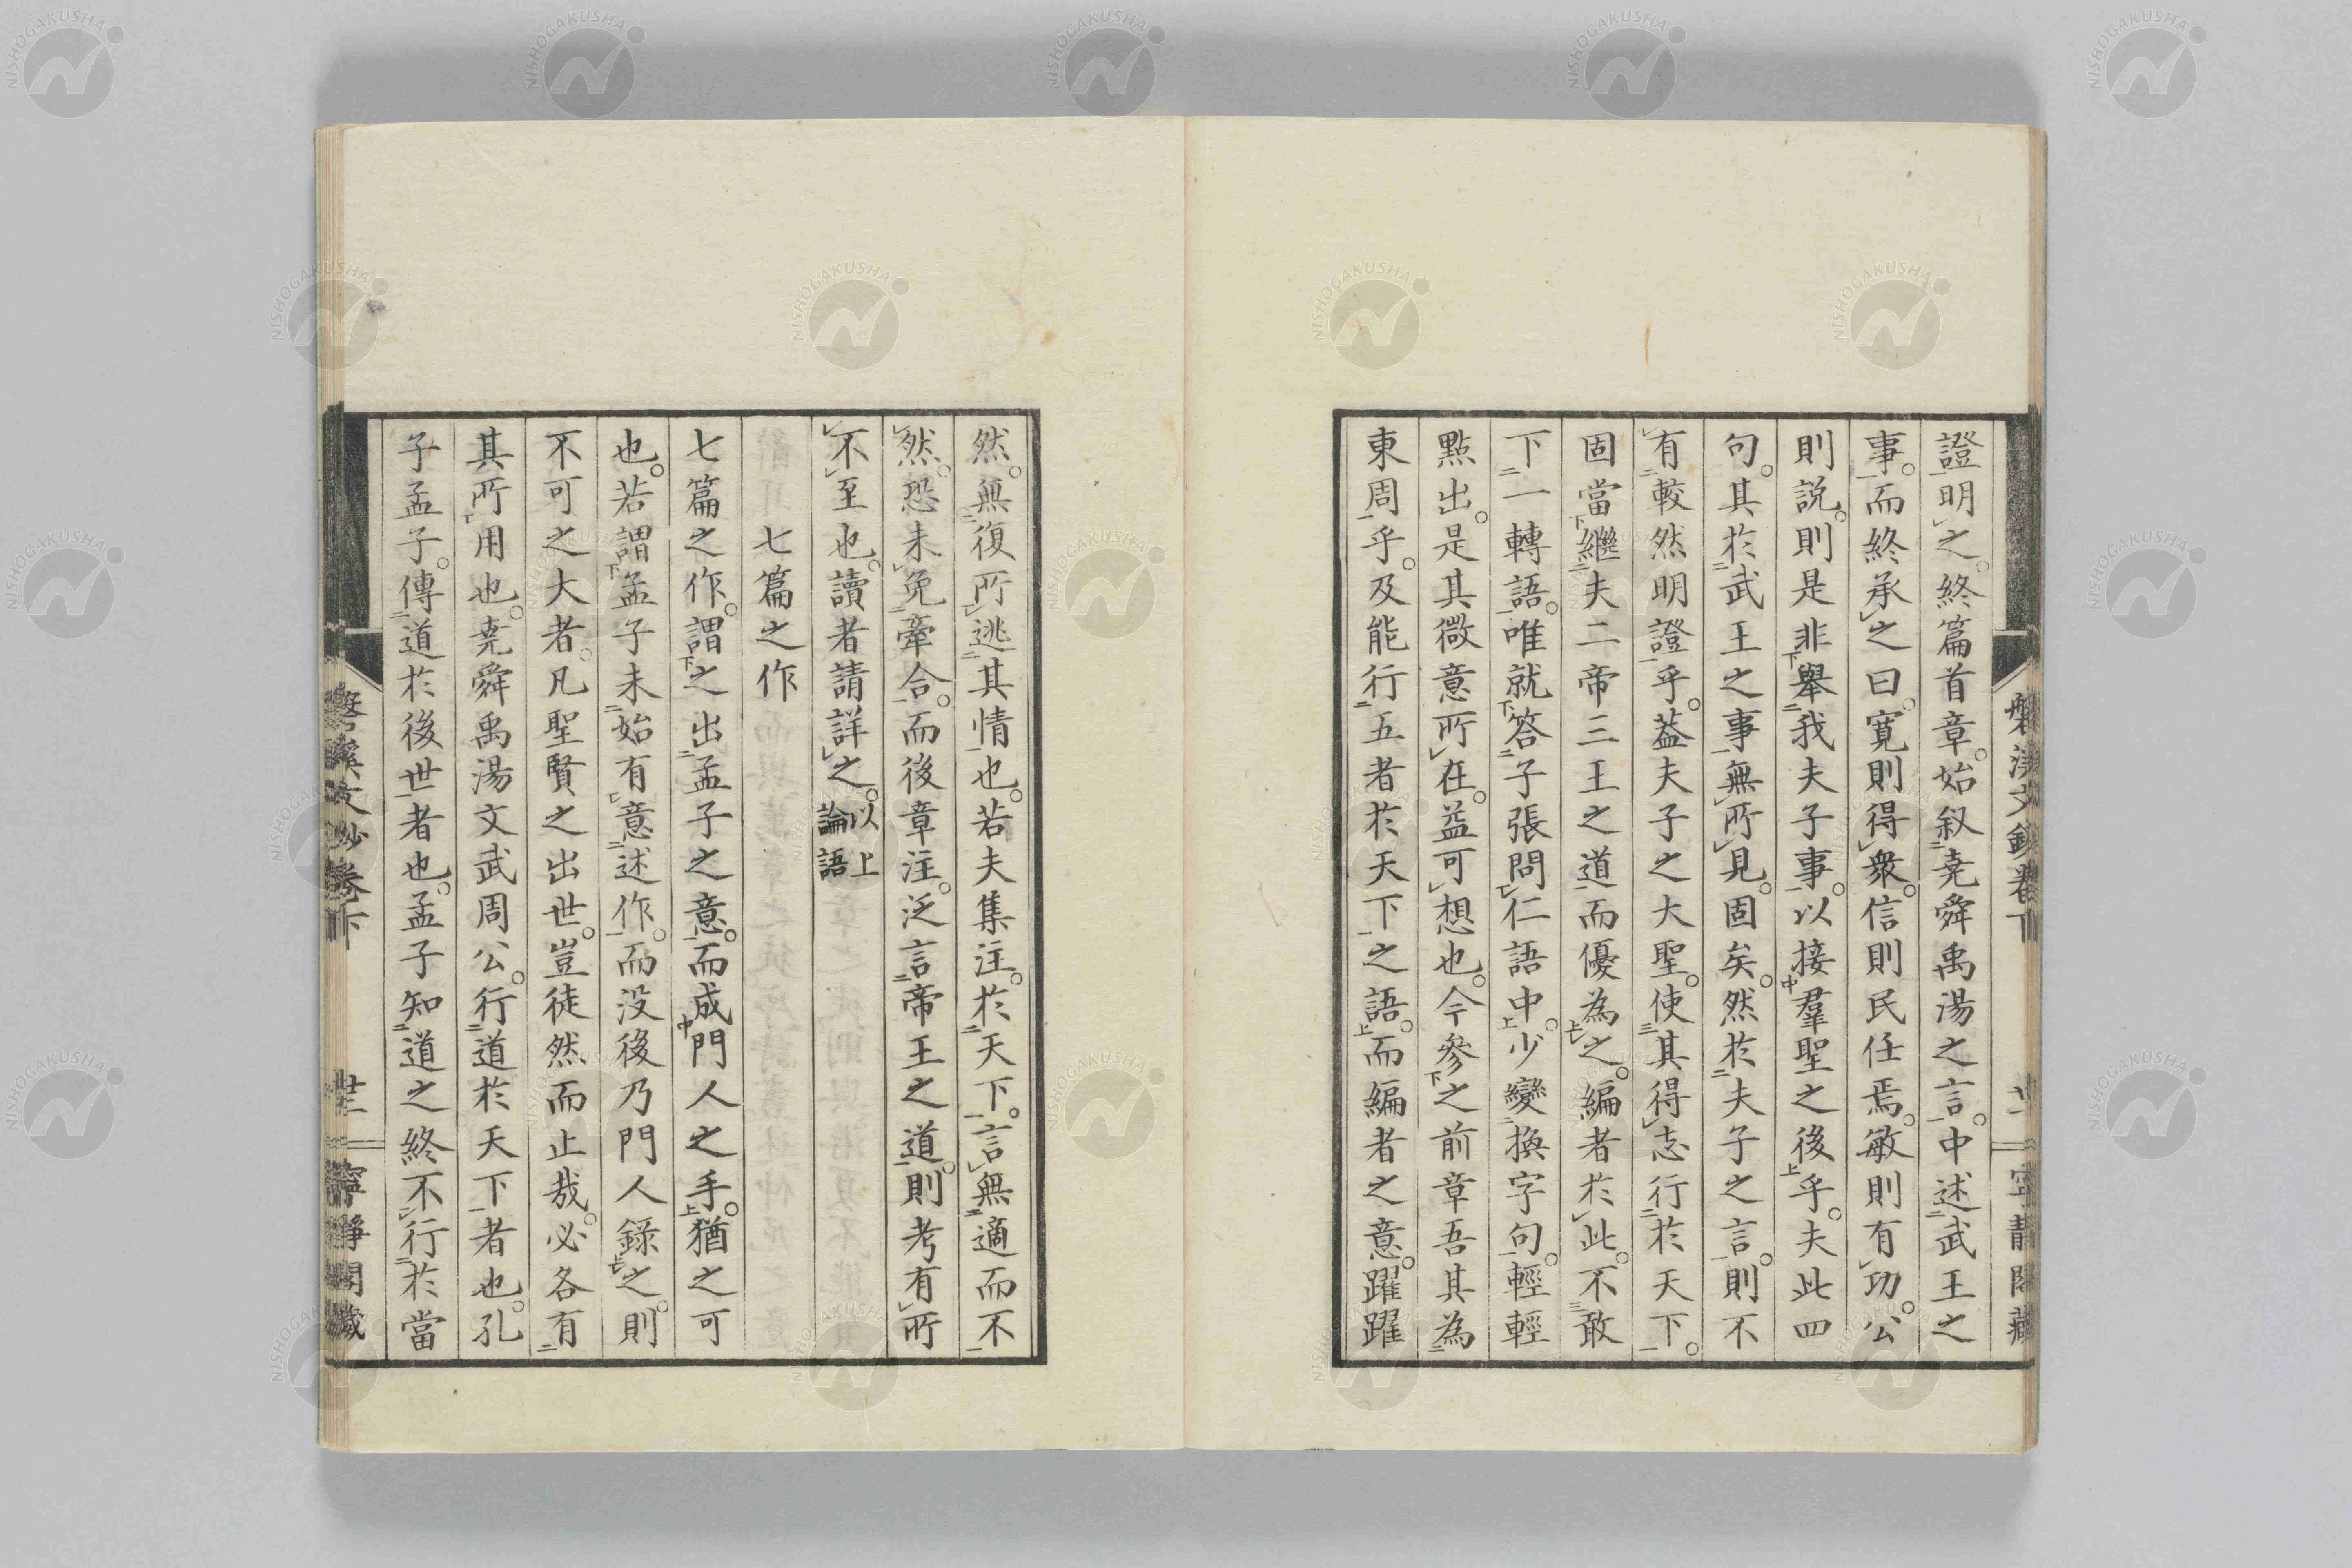 證明之。終篇首章。始叙堯舜禹湯之言。中述武王之
事。而終承之曰。寛則得衆。信則民任焉。敏則有功。公
則説。則是非舉我夫子事。以接羣聖之後乎。夫此四
句。其於武王之事無所見。固矣。然於夫子之言。則不
有較然明證乎。葢夫子之大聖。使其得志行於天下。
固當繼夫二帝三王之道而優為之。編者於此。不敢
下一轉語。唯就答子張問仁語中。少變換字句。輕輕
點出。是其微意所在。益可想也。今參之前章吾其為
東周乎。及能行五者於天下之語。而編者之意。躍躍
然。無復所逃其情也。若夫集注。於天下。言無適而不
然。恐未免牽合。而後章注。泛言帝王之道。則考有所
不至也。讀者請詳之。以上論語
七篇之作
七篇之作。謂之出孟子之意。而成門人之手。猶之可
也。若謂孟子未始有意述作。而没後乃門人録之。則
不可之大者。凡聖賢之出世。豈徒然而止哉。必各有
其所用也。堯舜禹湯文武周公。行道於天下者也。孔
子孟子。傳道於後世者也。孟子知道之終不行於當
磐溪文鈔卷下
寧靜閣藏